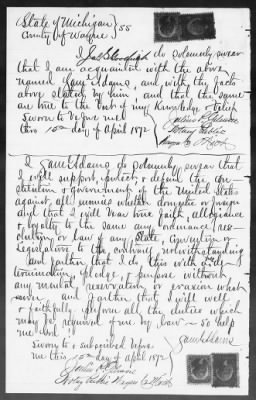 State of Michigan
County of Wayne } SS
I do solemnly swear
that I am acquainted with the above
named Adams, and with the facts
above stated by him and that the same
are true to the best of my Knowledge & belief
Sworn to before me
this 10th day of April 1872
Notary Public
Wayne Co Mich
I Adams do solemnly swear that
I will support, protect & defend the Con
stitution & government of the United States
against all enemies whether domestic or foreign
and that I will bear true faith, allegiance
& loyalty to the same any ordinance, res
olution or law of any State, Convention or
Legislature to the contrary notwithstanding
and further that I do this with a full
determination, pledge & purpose without
any mental reservation or evasion what
ever and further that I will well
& faithfully perform all the duties which
may be required of me by law - so help
me God
Sworn to & subscribed before
me this 10th day of April 1872
Notary Public Wayne Co Mich